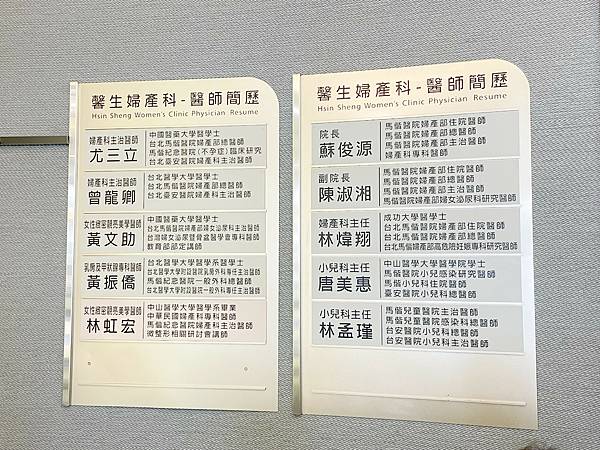 馨生婦產科-醫師簡歷
Hsin Sheng Women's Clinic Physician Resume
婦產科主治醫師
尤三立
中國醫藥大學醫學士
台北馬偕醫院婦產部總醫師
馬偕紀念醫院(不孕症)臨床研究
台北臺安醫院婦產科主治醫師
婦產科主治醫師
曾龍卿
台北醫學大學醫學士
台北馬偕醫院婦產部總醫師
台北臺安醫院婦產科主治醫師
女性緻密朝亮美學醫師
黃文助
中國醫藥大學醫學士
台北馬偕醫院婦產部婦女泌尿科主治醫師
台灣婦女泌尿暨骨盆醫學會專科醫師
教育部部定講師
乳房及甲狀腺專科醫師
黃振僑
台北醫學大學醫學系醫學士
台北醫學大學附設醫院乳房外科專任主治醫師
馬偕紀念醫院一般外科總醫師
台北醫學大學附設醫院一般外科專任主治醫師
女性緻密朝亮美學醫師
林虹宏
中山醫學大學醫學系畢業
中華民國婦產科專科醫師
馬偕紀念醫院婦產科主治醫師
微整形相關研討會講師
馨生婦產科-醫師簡歷
Hsin Sheng Women's Clinic Physician Resume
院長
蘇俊源
馬偕醫院婦產部住院醫師
馬偕醫院婦產部總醫師
馬偕醫院婦產部主治醫師
婦產科專科醫師
副院長
陳淑湘
馬偕醫院婦產部住院醫師
馬偕醫院婦產部總醫師
馬偕醫院婦產部主治醫師
馬偕醫院婦產部婦女泌尿科研究醫師
婦產科主任
林煒翔
成功大學醫學士
台北馬偕醫院婦產部住院醫師
台北馬偕醫院婦產部總醫師
台北馬偕醫院婦產部高危險妊娠專科研究醫師
小兒科主任
唐美惠
中山醫學大學醫學院學士
馬偕醫院小兒感染研究醫師
馬偕小兒科住院醫師
臺安醫院小兒科總醫師
小兒科主任
林孟瑾
馬偕兒童醫院主治醫師
馬偕兒童醫院感染科總醫師
台安醫院小兒科總醫師
台安醫院小兒科主治醫師